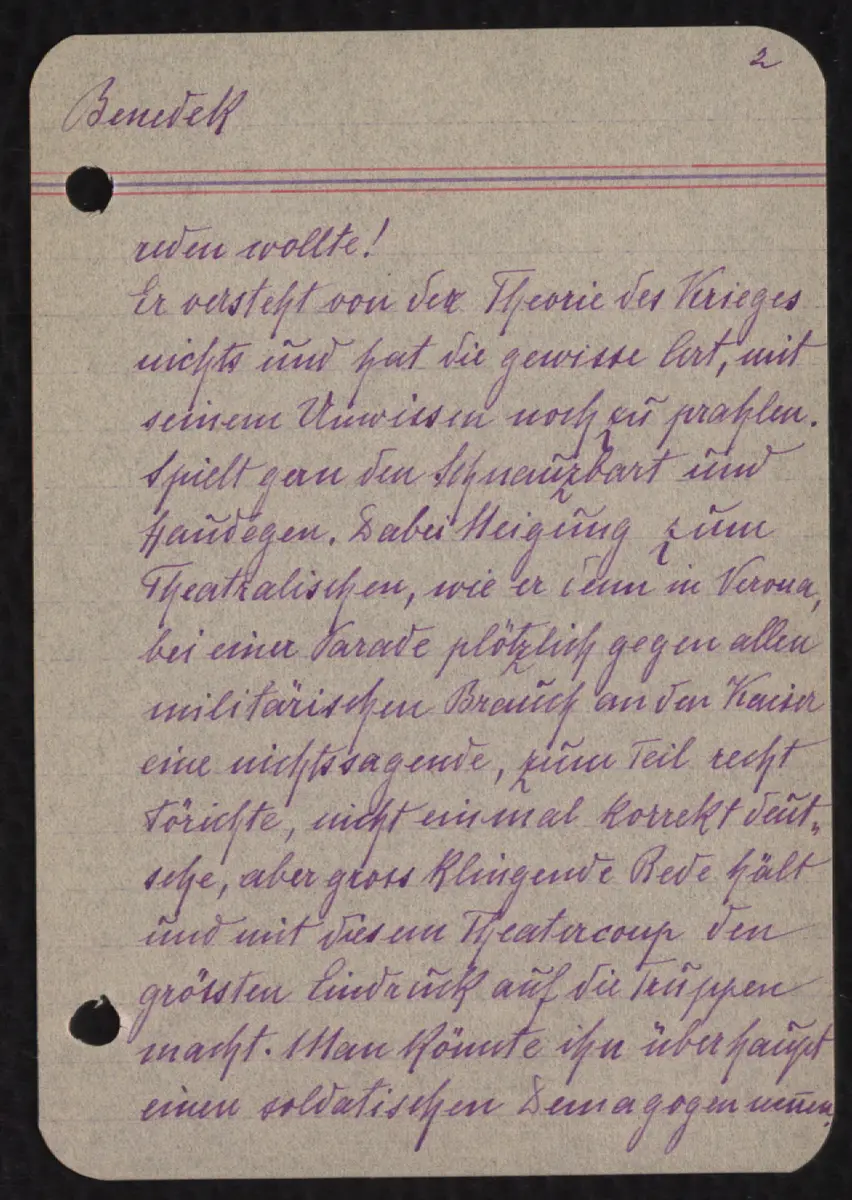 2
Benedek
reden wollte!
Er versteht von der Theorie des Krieges
nichts und hat die gewisse Art, mit
seinem Unwissen noch zu prahlen.
Spielt gern den Schnauzbart und
Haudegen. Dabei Neigung zum
Theatralischen, wie er denn in Verona,
bei einer Parade plötzlich gegen allen
militärischen Brauch an den Kaiser
eine nichtssagende, zum Teil recht
törichte, nicht einmal korrekt deut„
sche, aber gross klingende Rede hält
und mit diesem Theatercoup den
grössten Eindruck auf die Truppen
macht. Man könnte ihn überhaupt
einen soldatischen Demagogen nennen.